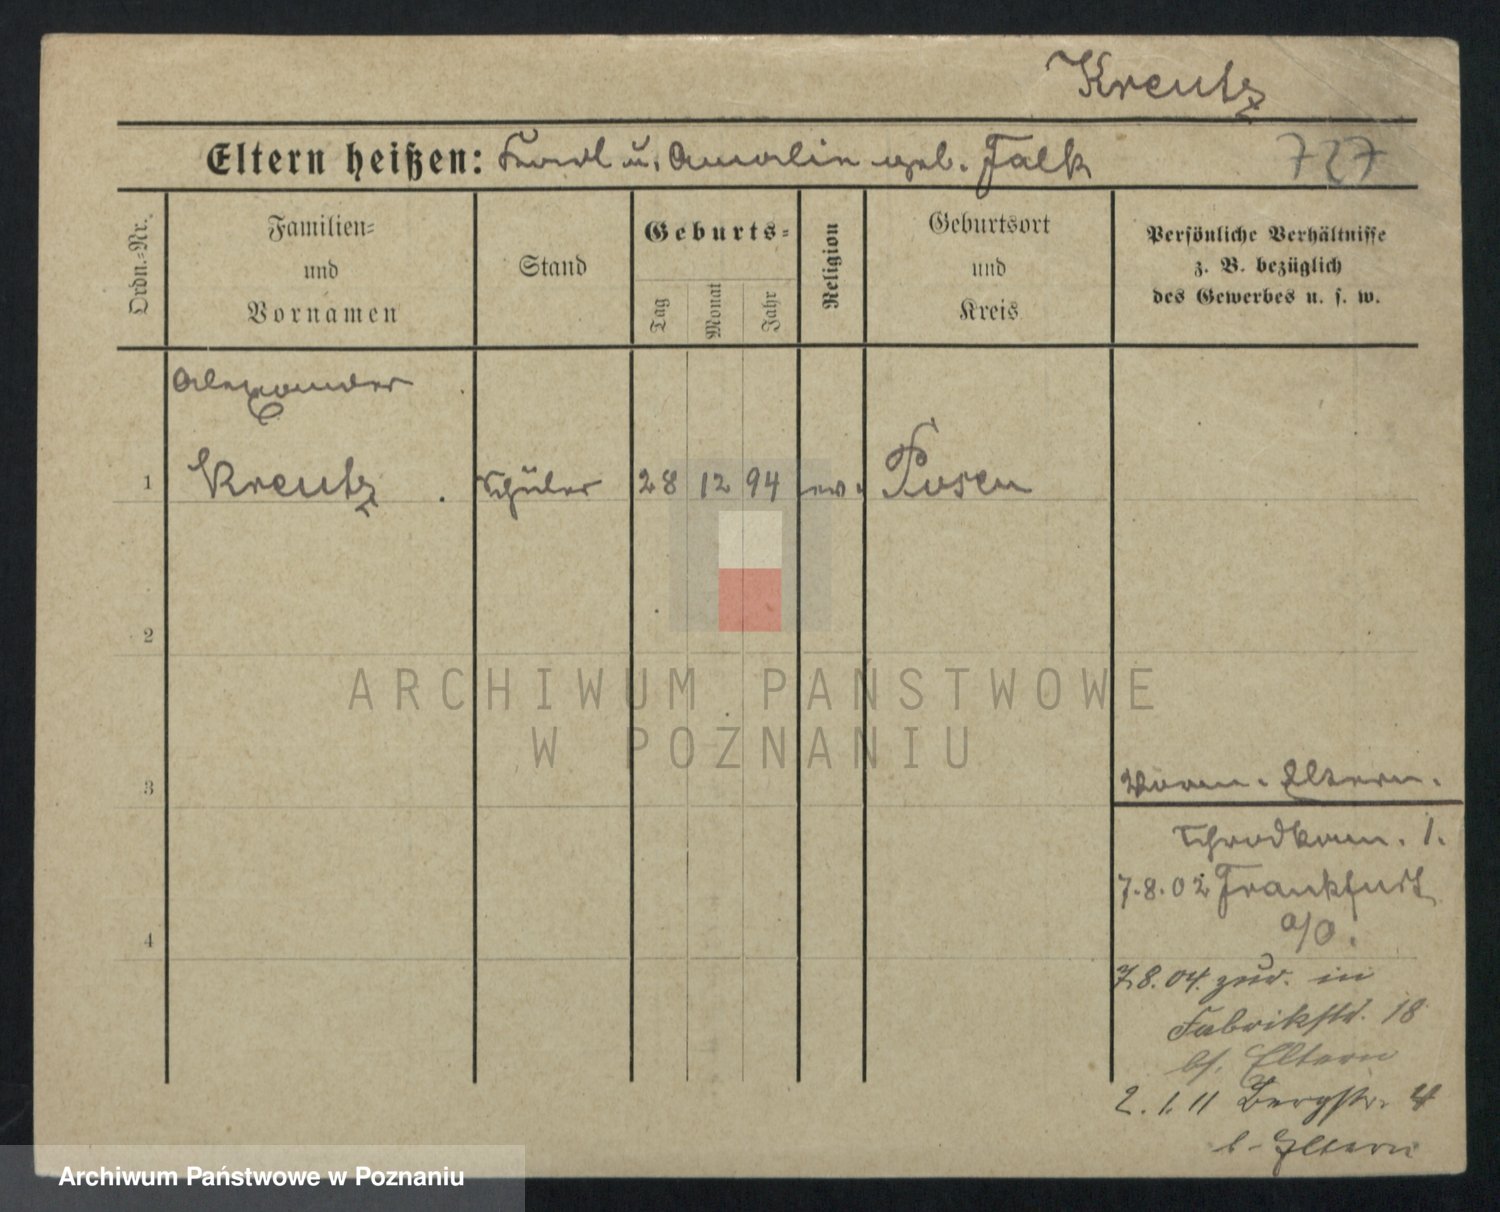 Kreutz
Eltern heißen: Ferd u. Amalie geb. Falk
727
Ordn.-Nr.
Familien-
und
Vornamen
Stand
Geburts-
Tag
Monat
Jahr
Religion
Geburtsort
und
Kreis
Persönliche Verhältnisse
z. B. bezüglich
des Gewerbes u. s. w.
Alexander
1 Kreutz Schüler 28 12 94 ev. Posen
2
3
4
Eltern.
1.
7.8.02 Frankfurt
a/O.
7.8.04. zur. in
Fabrikstr. 18
b/. Eltern
2.1.11 Bergstr. 4
b. Eltern
ARCHIWUM PAŃSTWOWE
W POZNANIU
Archiwum Państwowe w Poznaniu